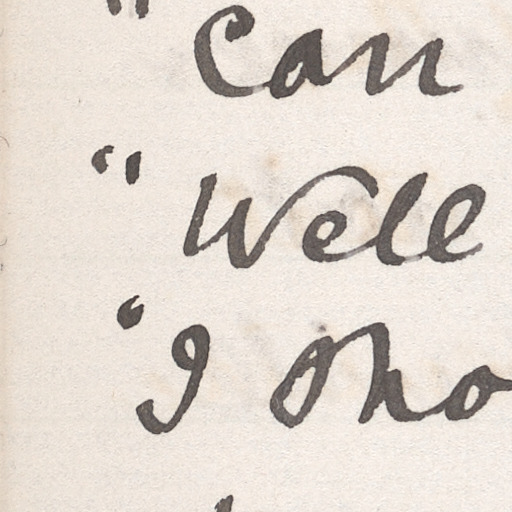 " Can
" Well
" I sho